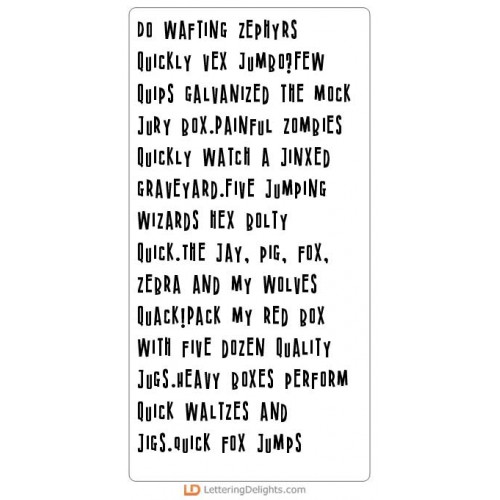 DO WAFTING ZEPHYRS
QUICKLY VEX JUMBO?FEW
QUIPS GALVANIZED THE MOCK
JURY BOX.PAINFUL ZOMBIES
QUICKLY WATCH A JINXED
GRAVEYARD.FIVE JUMPING
WIZARDS HEX BOLTY
QUICK.THE JAY, PIG, FOX,
ZEBRA AND MY WOLVES
QUACK!PACK MY RED BOX
WITH FIVE DOZEN QUALITY
JUGS.HEAVY BOXES PERFORM
QUICK WALTZES AND
JIGS.QUICK FOX JUMPS
LD LetteringDelights.com